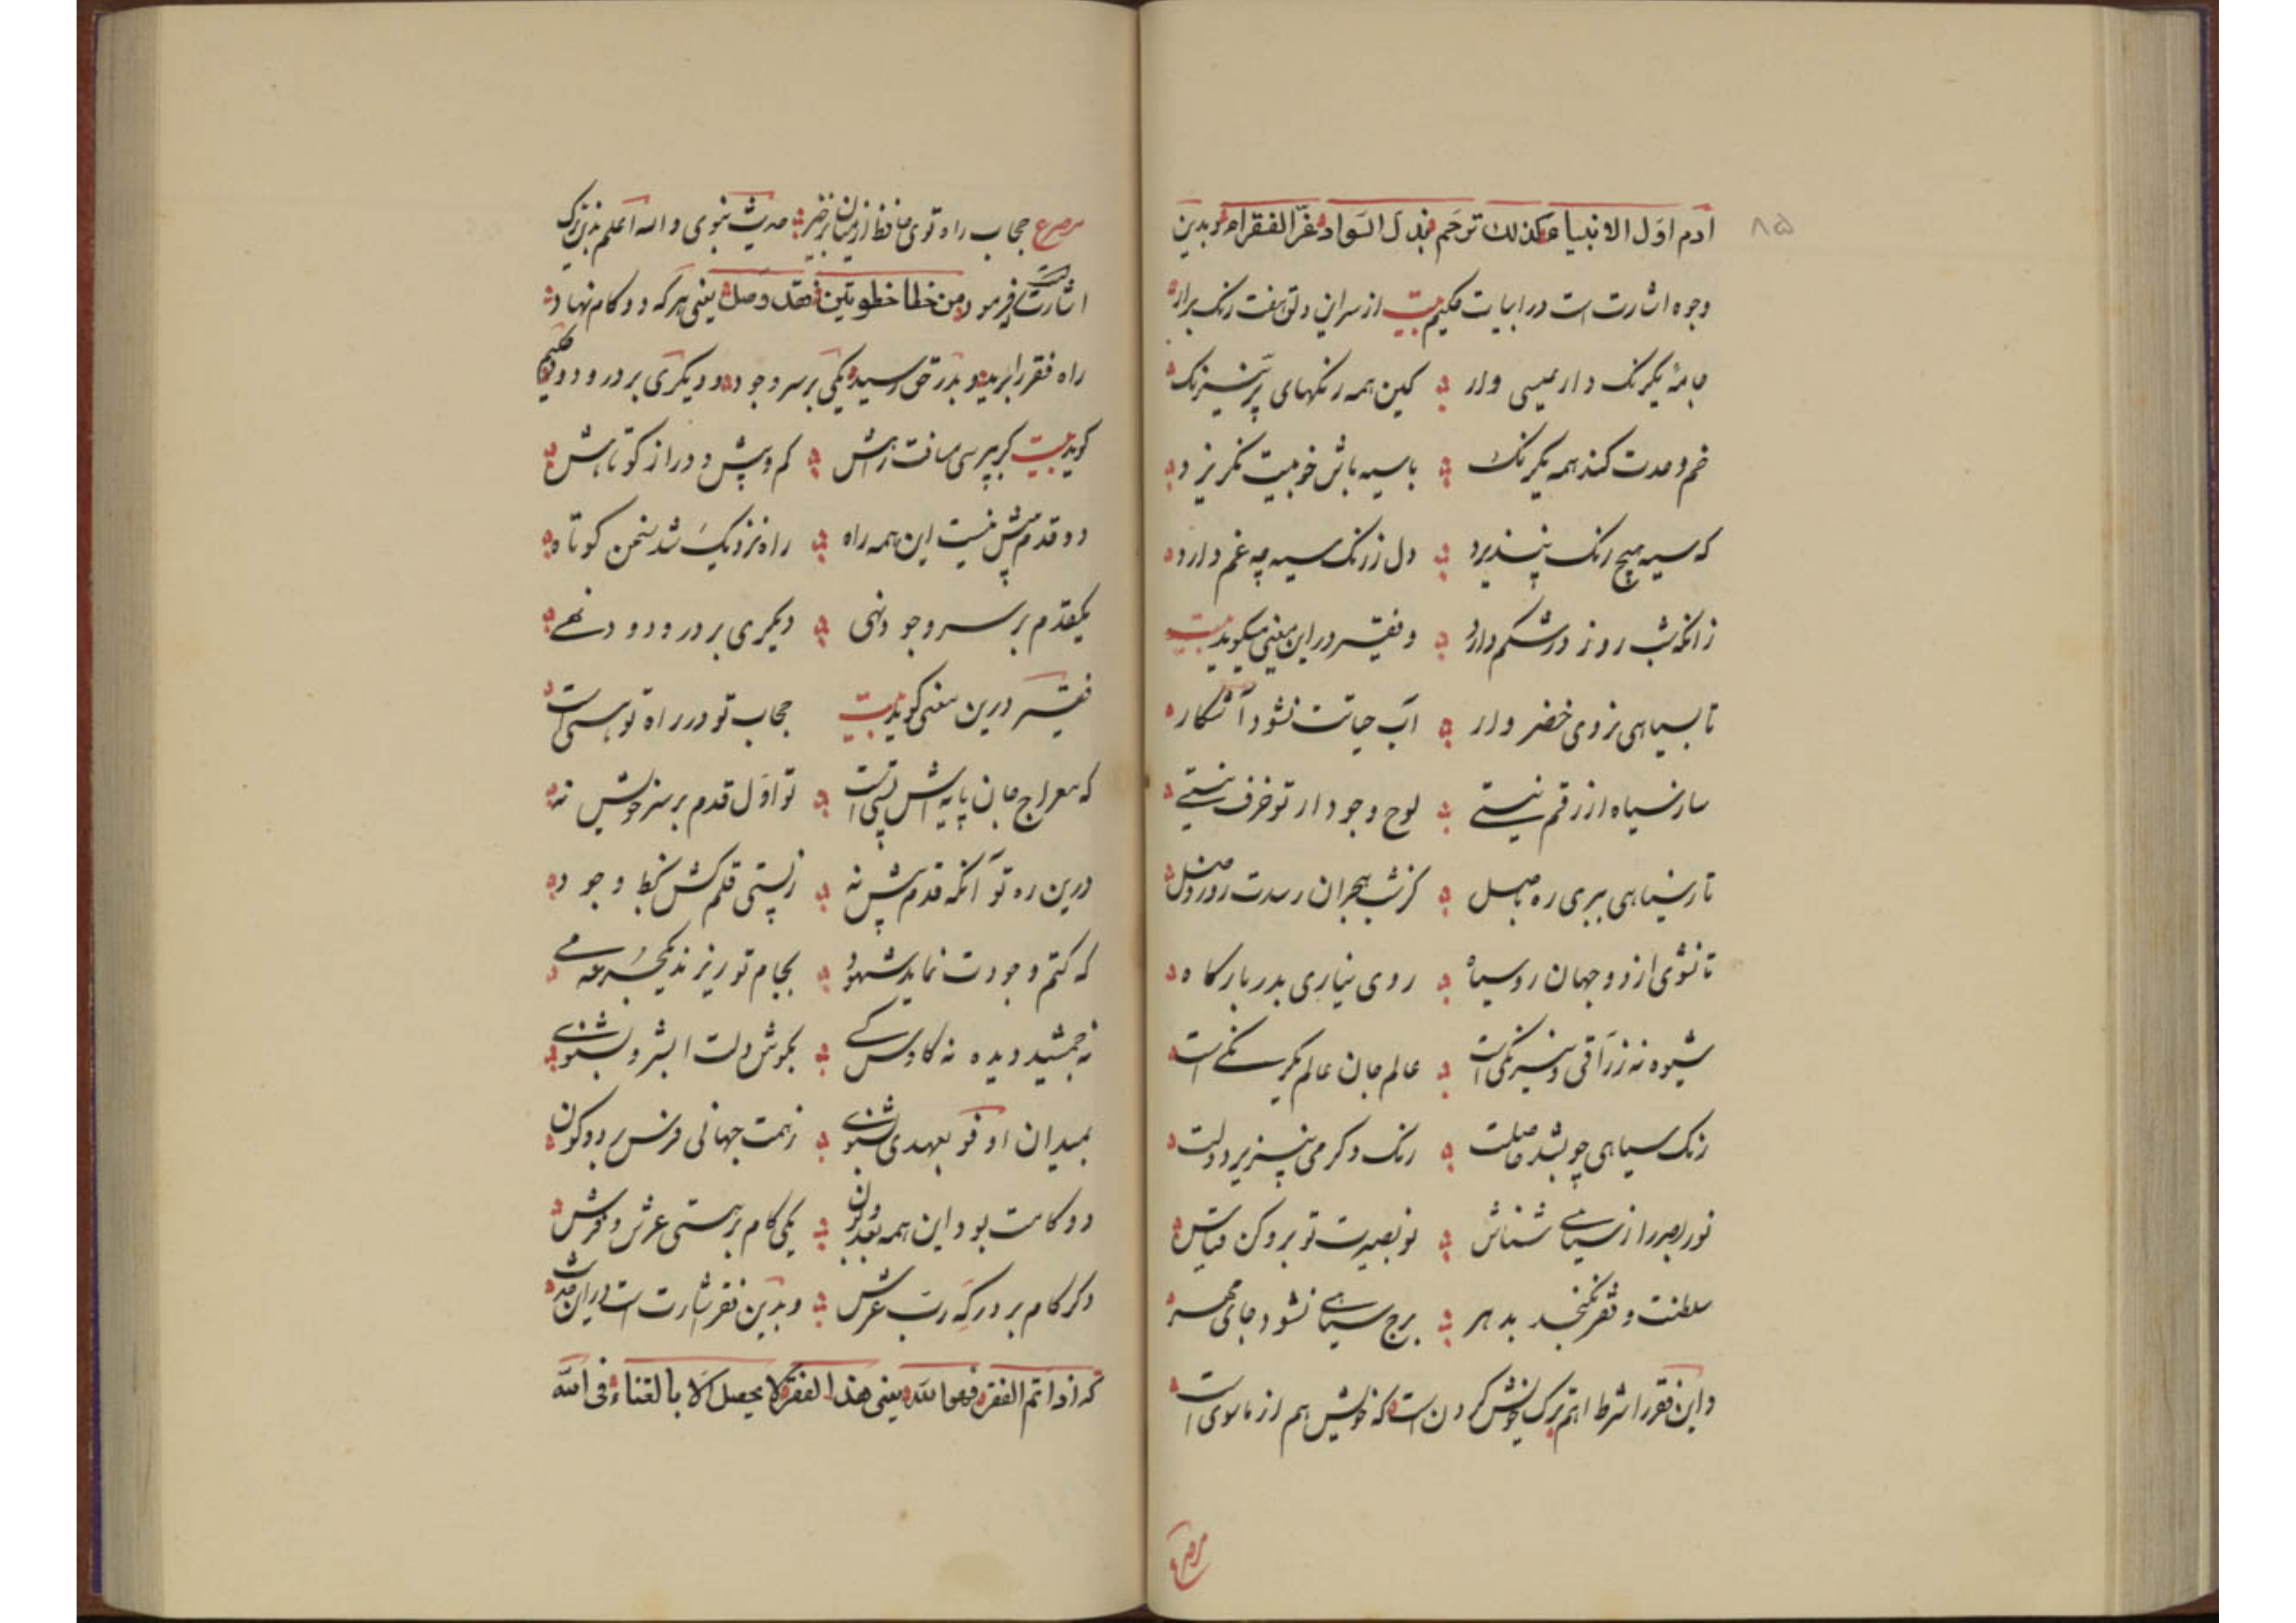 ۸۵
ادم اول الانبیاء و کذلک ترحم بذل السواد عز الفقراء و بدین
وجوه اشارت است در ابیات حکیم بیت از سر این دلق هفت رنگ برار
جامهٔ یکرنک دار عیسی وار کین همه رنکهای پر نیرنک
خم وحدت کند همه یکرنک با سیه باش خو بیت نکریزد
که سیه هیچ رنک نپذیرد دل ز رنک سیه چه غم دارد
زانکه شب روز در شکم دارد و فقیر در این معنی میکوید بیت
تا بسیاهی نروی خضر وار آب حیاتت نشود آشکار
ساز سیاه از رقم نیستی لوح وجود از تو خرف نیستی
تا ز سیاهی ببری ره باصل کز شب هجران رسدت روز وصل
تا نشوی از دو جهان روسیاه روی نیاری بدر بارکاه
شیوه نه زراقی و نیرنکی است عالم جان عالم یکرنکی است
رنک سیاهی چو بشد حاصلت رنک دکر می نپذیرد دلت
نور بصر را ز سیاهی شناس نو بصیرت تو برو کن قیاس
سلطنت و فقر نکنجد بدهر برج سیاهی نشود جای مهر
و این فقر را شرط اهتم ترک خویش کردن است که خویش هم از ماسوی است
مصرع
مصرع حجاب راه توی حافظ از میان برخیز حدیث نبوی و الله اعلم بدین ترک
اشارتست فرمود من خطا خطوتین فقد وصل یعنی هرکه دو کام نهاد
راه فقر را برید و بدر حق رسید یکی بر سر وجود و دیکری بر در ودود حکیم
کوید بیت کر بپرسی مسافت راهش کم و بیش و دراز کوتاهش
دو قدم بیش نیست این همه راه راه نزدیک شد سخن کوتاه
یکقدم بر سر وجود نهی دیکری بر در ودود نهی
فقیر درین معنی کوید بیت حجاب تو در راه تو هستی است
که معراج جان پایه اش پستی است تو اول قدم بر سر خویش نه
درین ره تو آنکه قدم پیش نه ز پستی قلم کش بخط وجود
که کتم وجودت نماید شهود بجام تو ریزند یکجرعه می
نه جمشید دیده نه کاوس کی بکوش دلت ابشر و بشنوی
بمیدان اوفو بعهدی شنوی ز همت جهانی فرس بر دو کون
دو کامت بود این همه بعد و بون یکی کام بر هستی عرش و فرش
دکر کام بر درکه رب عرش و بدین فقر اشارت است در این حدیث
که اذا تم الفقر فهو الله یعنی هذا الفقر لا یحصل الا بالفناء فی الله